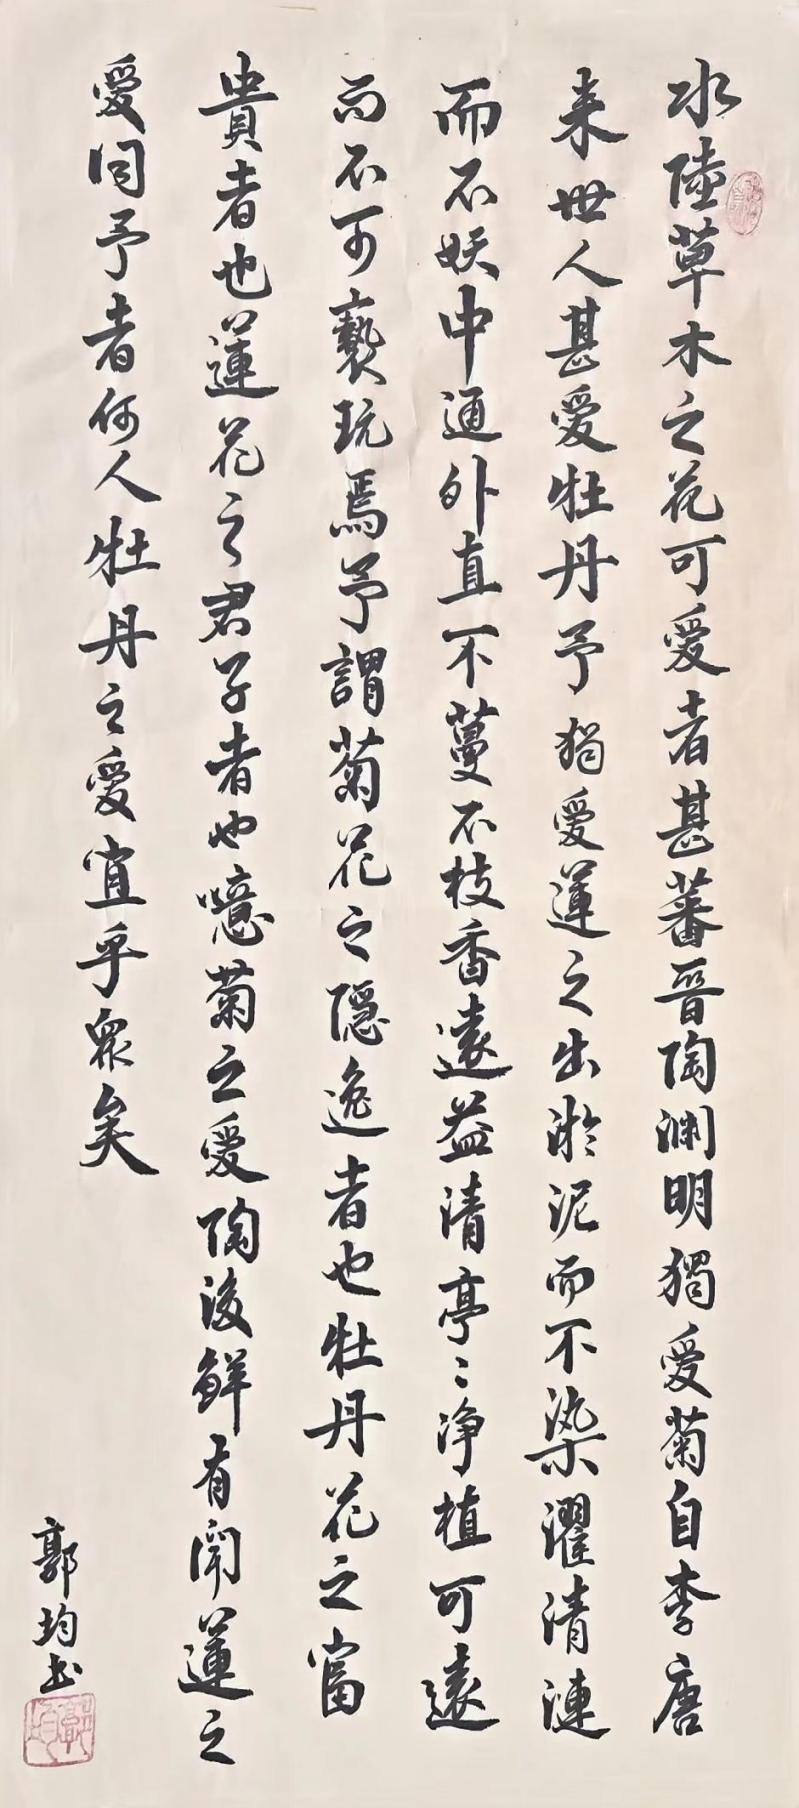 水陸草木之花可愛者甚蕃晉陶渊明獨愛菊自李唐
来世人甚愛牡丹予獨愛蓮之出淤泥而不染濯清漣
而不妖中通外直不蔓不枝香遠益清亭〻净植可遠
而不可褻玩焉予謂菊花之隱逸者也牡丹花之富
貴者也蓮花之君子者也噫菊之愛陶後鮮有聞蓮之
愛同予者何人牡丹之愛宜乎眾矣
郭均书